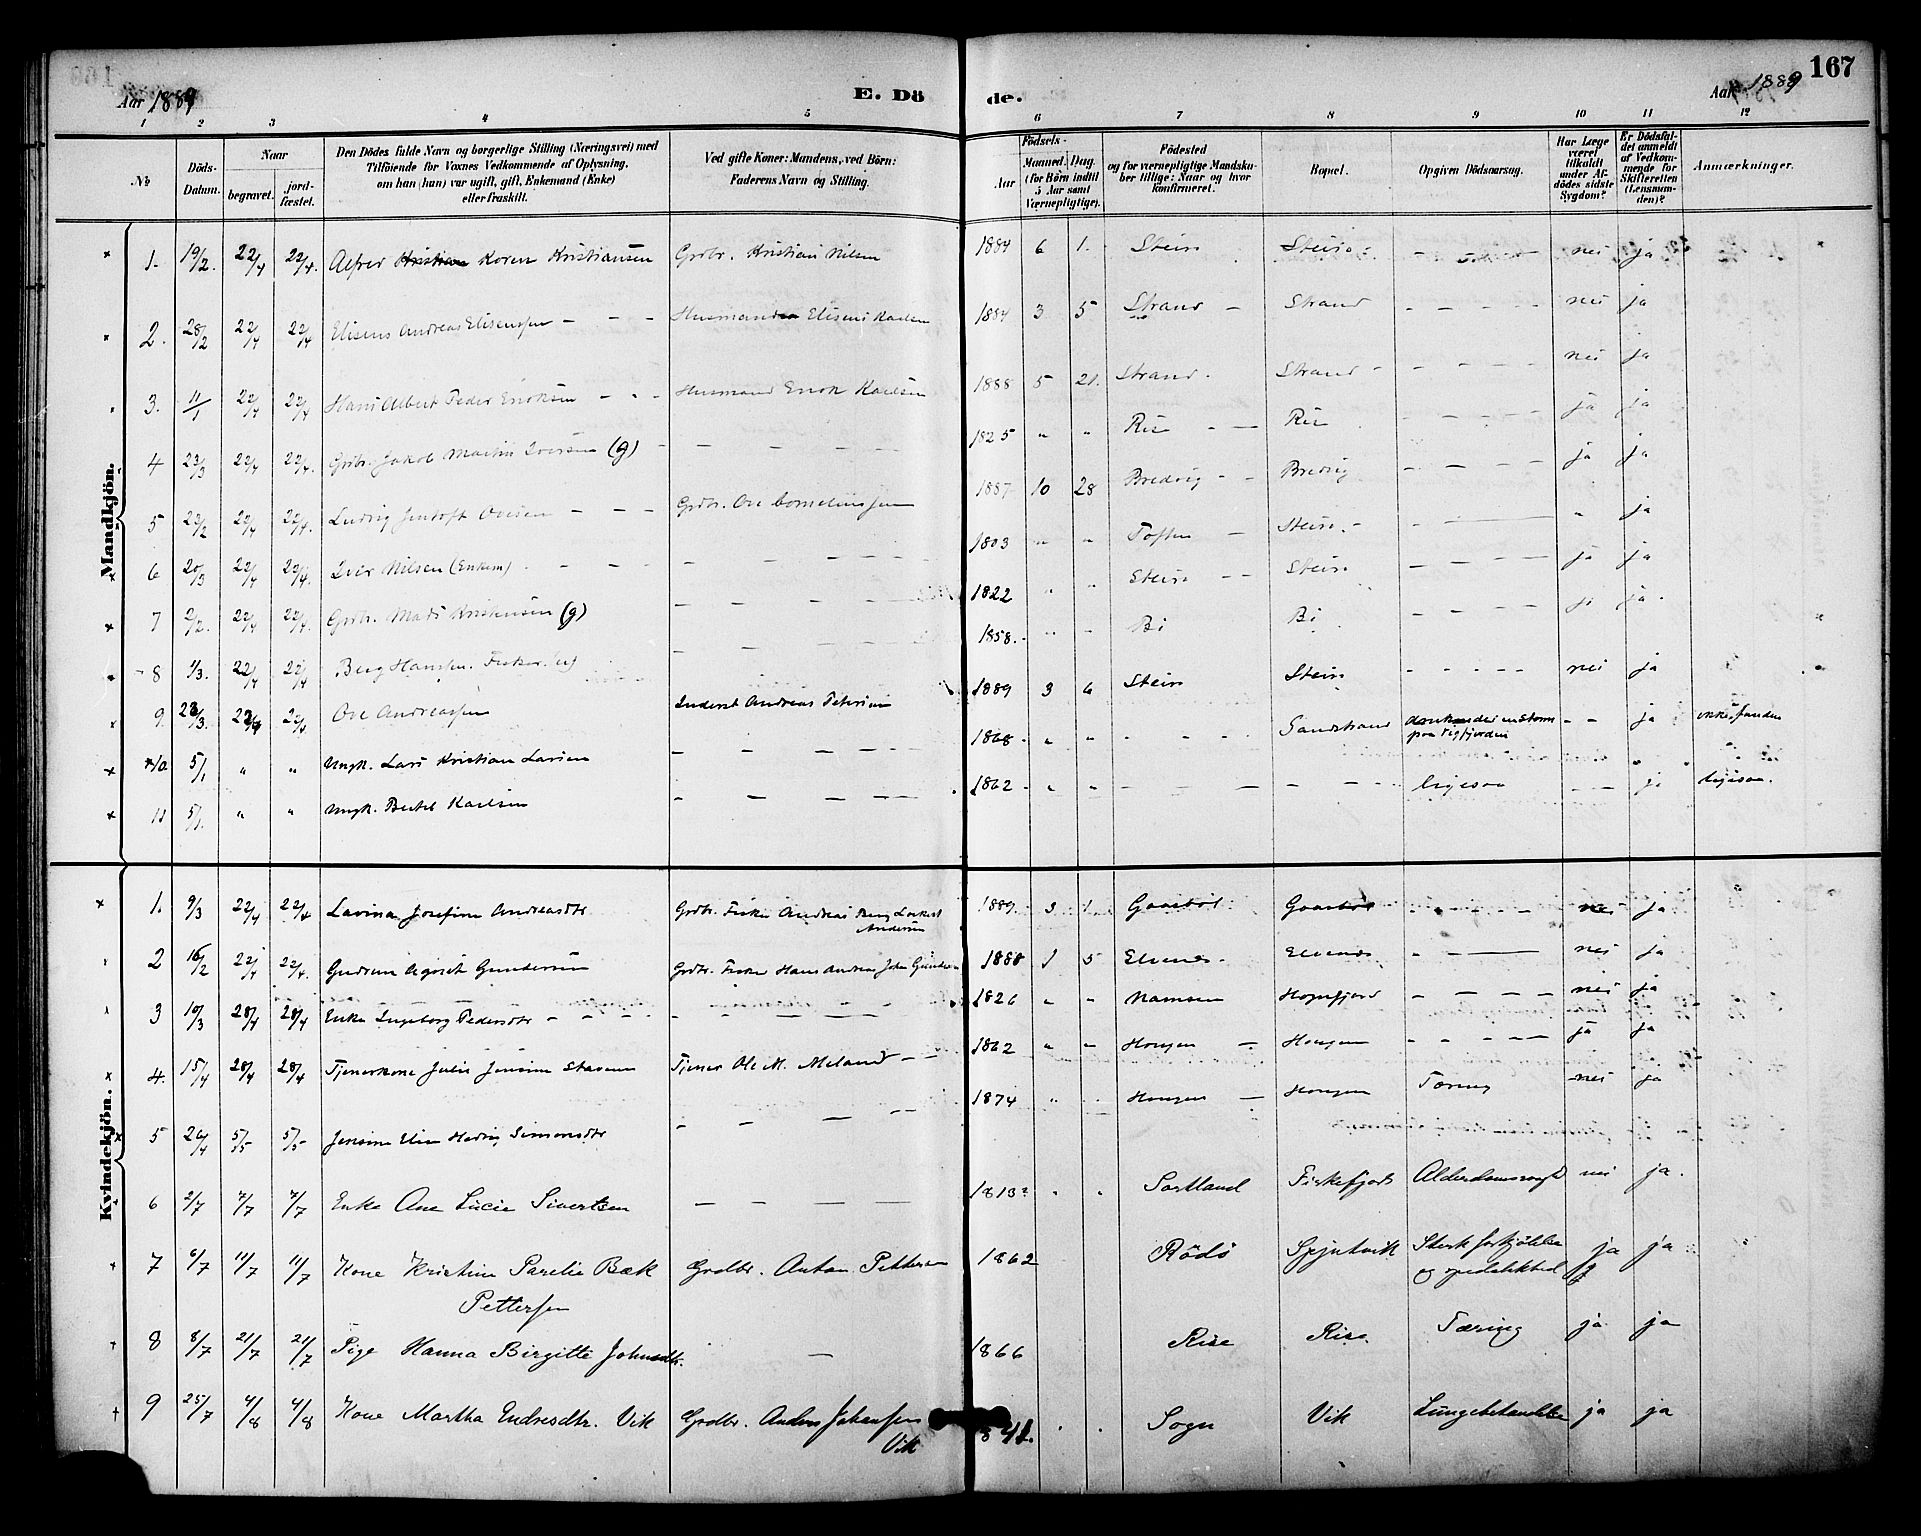 167
Aar 1889
E. Döde.
Aar 1889
1 2 3 4 5 6 7 8 9 10 11 12
No
Döds-Datum.
Naar
begravet.
jord-fæstet.
Den Dödes fulde Navn og borgerlige Stilling (Næringsvei) med
Tilföiende for Voxnes Vedkommende af Oplysning,
om han (hun) var ugift, gift, Enkemand (Enke)
eller fraskilt.
Ved gifte Koner: Mandens, ved Börn:
Faderens Navn og Stilling.
Födsels-
Aar
Maaned. Dag.
(for Börn indtil
5 Aar samt
Værnepligtige).
Födested
og for værnepligtige Mandska-
ber tillige: Naar og hvor
konfirmeret.
Bopæl.
Opgiven Dödsaarsag.
Har Læge
været
tilkaldt
under Af-
dödes sidste
Sygdom?
Er Dödsfal-
det anmeldt
af Vedkom-
mende for
Skifteretten
(Lensman-
den)?
Anmærkninger.
Mandkjön.
1. 19/2. 22/4 22/4. Alfred Kristian Koren Kristiansen Grdbr. Kristian Nilsen 1884 6 1. Stein Stein nei ja
2. 28/2 22/4 22/4 Elisens Andreas Elisenssen Husmand Elisens Karlsen 1884 3 5 Strand Strand nei ja
3. 11/1 22/4 22/4 Hans Albert Peder Enoksen Husmand Enok Karlsen 1888 5 21. Strand. Strand nei ja
4 23/3 22/4 22/4. Grdbr. Jakob Martin Iversen (g) 1825 " " Rise Rise ja ja
5 22/2 22/4 22/4. Ludvig Jentoft Ovesen Grdbr. Ove Corneliussen 1887 10 28 Bredvig Bredvig ja ja
6 20/3 22/4 22/4. Iver Nilsen (Enkem) 1803 " " Toften Stein " ja
7 2/2. 22/4 22/4. Grdbr. Mads Kristensen (g) 1822 " " Stein Stein ja ja
8 1/3. 22/4 22/4 Berg Hansen. Fisker. 1858. " " Bö Bö ja ja.
9. 23/3. 22/4 22/4 Ove Andreassen Inderst Andreas Petersen 1889 3 6 Stein Stein nei ja
10. 5/1 " " Ungk. Lars Kristian Larsen 1868 " " Sandstrand druknede i en storm ja ikke funden
paa Vegfjorden
11 5/1. " " Ungk. Bertel Karlsen 1862 " " ligesaa ja ligesaa.
Kvindekjön.
1. 9/3 22/4 22/4 Lavina Josefine Andreasdtr Grdbr. Fisker Andreas Berg
Andersen 1889. 3 1 Gaasböl Gaasböl nei ja
2 16/2 22/4 22/4. Gudrun Gundersen Grdbr. Fisker Hans Andreas John Gundersen 1888 1 5 Elvenes. Elvenes nei ja
3 10/3 28/4 28/4 Enke Ingeborg Pedersdtr 1826 " " Namsen Hognfjord nei ja
4. 15/4 28/4 28/4 Tjenerkone Julie Jensine Stavem Tjener Ole M. Meland 1862 " " Hongen Hongen ja ja
5 26/4 5/5 5/5 Jensine Elise Hedvig Simonsdtr 1874 " Hongen Hongen Tæring nei ja
6 2/7 7/7 7/7 Enke Ane Lucie Sivertsen 1813? Sortland Fiskefjord Alderdomssvagh nei ja.
7 6/7 11/7 11/7 Kone Kristine Parelie Bæk Grdbr. Anton Pettersen 1862 Rödö Spjutvik Sterk forkjölelse ja ja
Pettersen og spedalskhed
8 8/7 21/7 21/7 Pige Hanna Birgitte Johnsdtr. 1866 Rise Rise. Tæring ja ja
9 25/7 4/8 4/8 Kone Martha Endresdtr. Vik Grdbr. Anders Johansen
Vik 1841. Sogn Vik Lungebetændelse ja ja